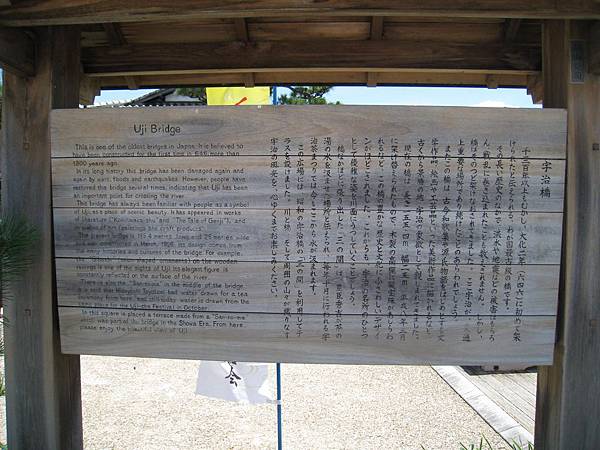 Uji Bridge
This is one of the oldest bridges in Japan. It is believed to
have been constructed for the first time in 646, more than
1300 years ago.
In its long history this bridge has been damaged again and
again by wars, floods and earthquakes. However, people have
restored the bridge several times, indicating that Uji has been
an important point for crossing the river.
This bridge has always been familiar with people as a symbol
of Uji, as a place of scenic beauty. It has appeared in works
of literature ("Kokinwaka-shu" and "The Tale of Genji"), and
in works of art (paintings and craft products).
The present bridge is 155.4 meters long and 25 meters wide
and was constructed in March, 1996. Its design comes from
the long histories and cultures of the bridge. For example,
on the wooden
railings is one of the sights of Uji. Its elegant figure is
constantly reflected on the surface of the river.
There is also the "San-no-ma" in the middle of the bridge.
It is said that Hideyoshi Toyotomi had water drawn for a tea
ceremony from here, and still today water is drawn from the
same place to the Uji-cha Festival in October.
In this square is placed a terrace made from a "San-no-ma"
which was part of the bridge in the Showa Era. From here,
please enjoy the beautiful view of Uji.
宇治橋
千三百年以上もむかし、大化二年(六四六)に初めて架
けられたと伝えられる、わが国最古級の橋です。
その長い歴史のなかで、洪水や地震などの被害はもちろ
ん、戦乱に巻き込まれたことも数えきれません。しかし、
橋はそのつど架けなおされてきました。ここ宇治が、交通
上重要な場所であり続けたことのあらわれでしょう。
またこの橋は、古今和歌集や源氏物語をはじめとする文
学作品に、絵画や工芸品といった美術作品に描かれるなど、
古くから名勝の地・宇治の象徴として親しまれてきました。
現在の橋は、長さ一五五・四m、幅二五m、平成八年三月
に架け替えられたもので、
れるなど、この橋の豊かな歴史と文化にちなんだデザイ
ンがほどこされました。これからも、宇治の名所のひとつ
として優雅な姿を川面にうつしていくことでしょう。
橋なかほどに張り出した「三の間」は、豊臣秀吉が茶の
湯の水を汲ませた場所と伝えられ、毎年十月に行われる宇
治茶まつりでは今もここから水が汲まれます。
この広場には、昭和の宇治橋の「三の間」を利用してテ
ラスを設けました。川と橋、そして周囲の山々が織りなす
宇治の風光を、心ゆくまでお楽しみください。